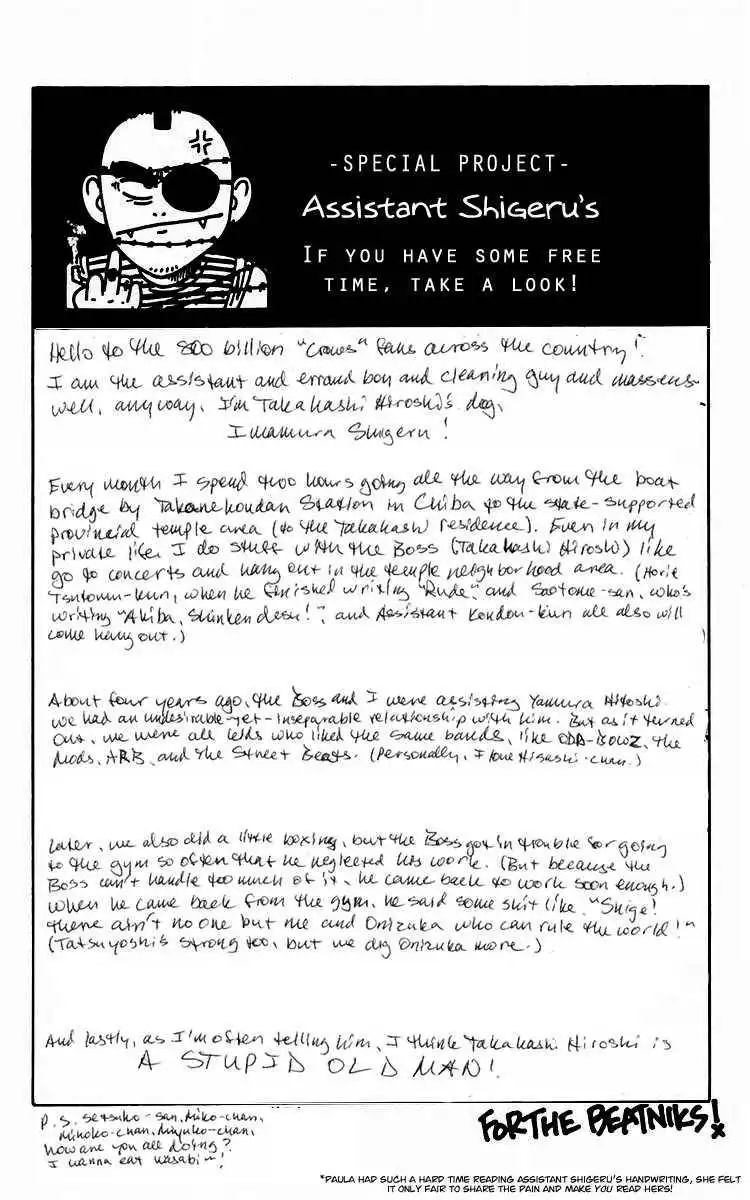 -SPECIAL PROJECT-
Assistant Shigeru's
IF YOU HAVE SOME FREE
TIME, TAKE A LOOK!
Hello to the 800 billion "Crows" fans across the country!
I am the assistant and errand boy and cleaning guy and masseus-
well, anyway, I'm Takahashi Hiroshi's dog,
Imamura Shigeru!
Every month I spend two hours going all the way from the boat
bridge by Takanekoudan Station in Chiba to the state-supported
provincial temple area (to the Takahashi residence). Even in my
private life I do stuff with the Boss (Takahashi Hiroshi) like
go to concerts and hang out in the temple neighborhood area. (Horie
Tsutomu-kun, when he finished writing "Rude" and Saotome-san, who's
writing "Akiba, Shinken desu!", and Assistant Kondou-kun all also will
come hang out.)
About four years ago, the Boss and I were assisting Yamura Hitoshi.
We had an undesirable-yet-inseparable relationship with him. But as it turned
out, we were all kids who liked the same bands, like the
Mods, ARB, and the Street Beats. (Personally, I love Hisashi-chan.)
Later, we also did a little boxing, but the Boss got in trouble for going
to the gym so often that he neglected his work. (But because the
Boss can't handle too much of it, he came back to work soon enough.)
When he came back from the gym, he said some shit like, "Shige!
there ain't no one but me and Onizuka who can rule the world!"
(Tatsuyoshi's strong too, but we dig Onizuka more.)
And lastly, as I'm often telling him, I think Takahashi Hiroshi is
A STUPID OLD MAN!
P.S. Setsuko-san, Miko-chan,
Mihoko-chan, Miyuko-chan,
how are you all doing?
I wanna eat wasabi~!
FOR THE BEATNIKS!
*PAULA HAD SUCH A HARD TIME READING ASSISTANT SHIGERU'S HANDWRITING, SHE FELT
IT ONLY FAIR TO SHARE THE PAIN AND MAKE YOU READ HERS!